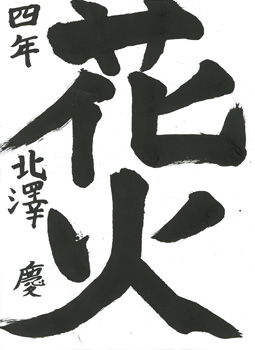 花火
四年
北澤 慶